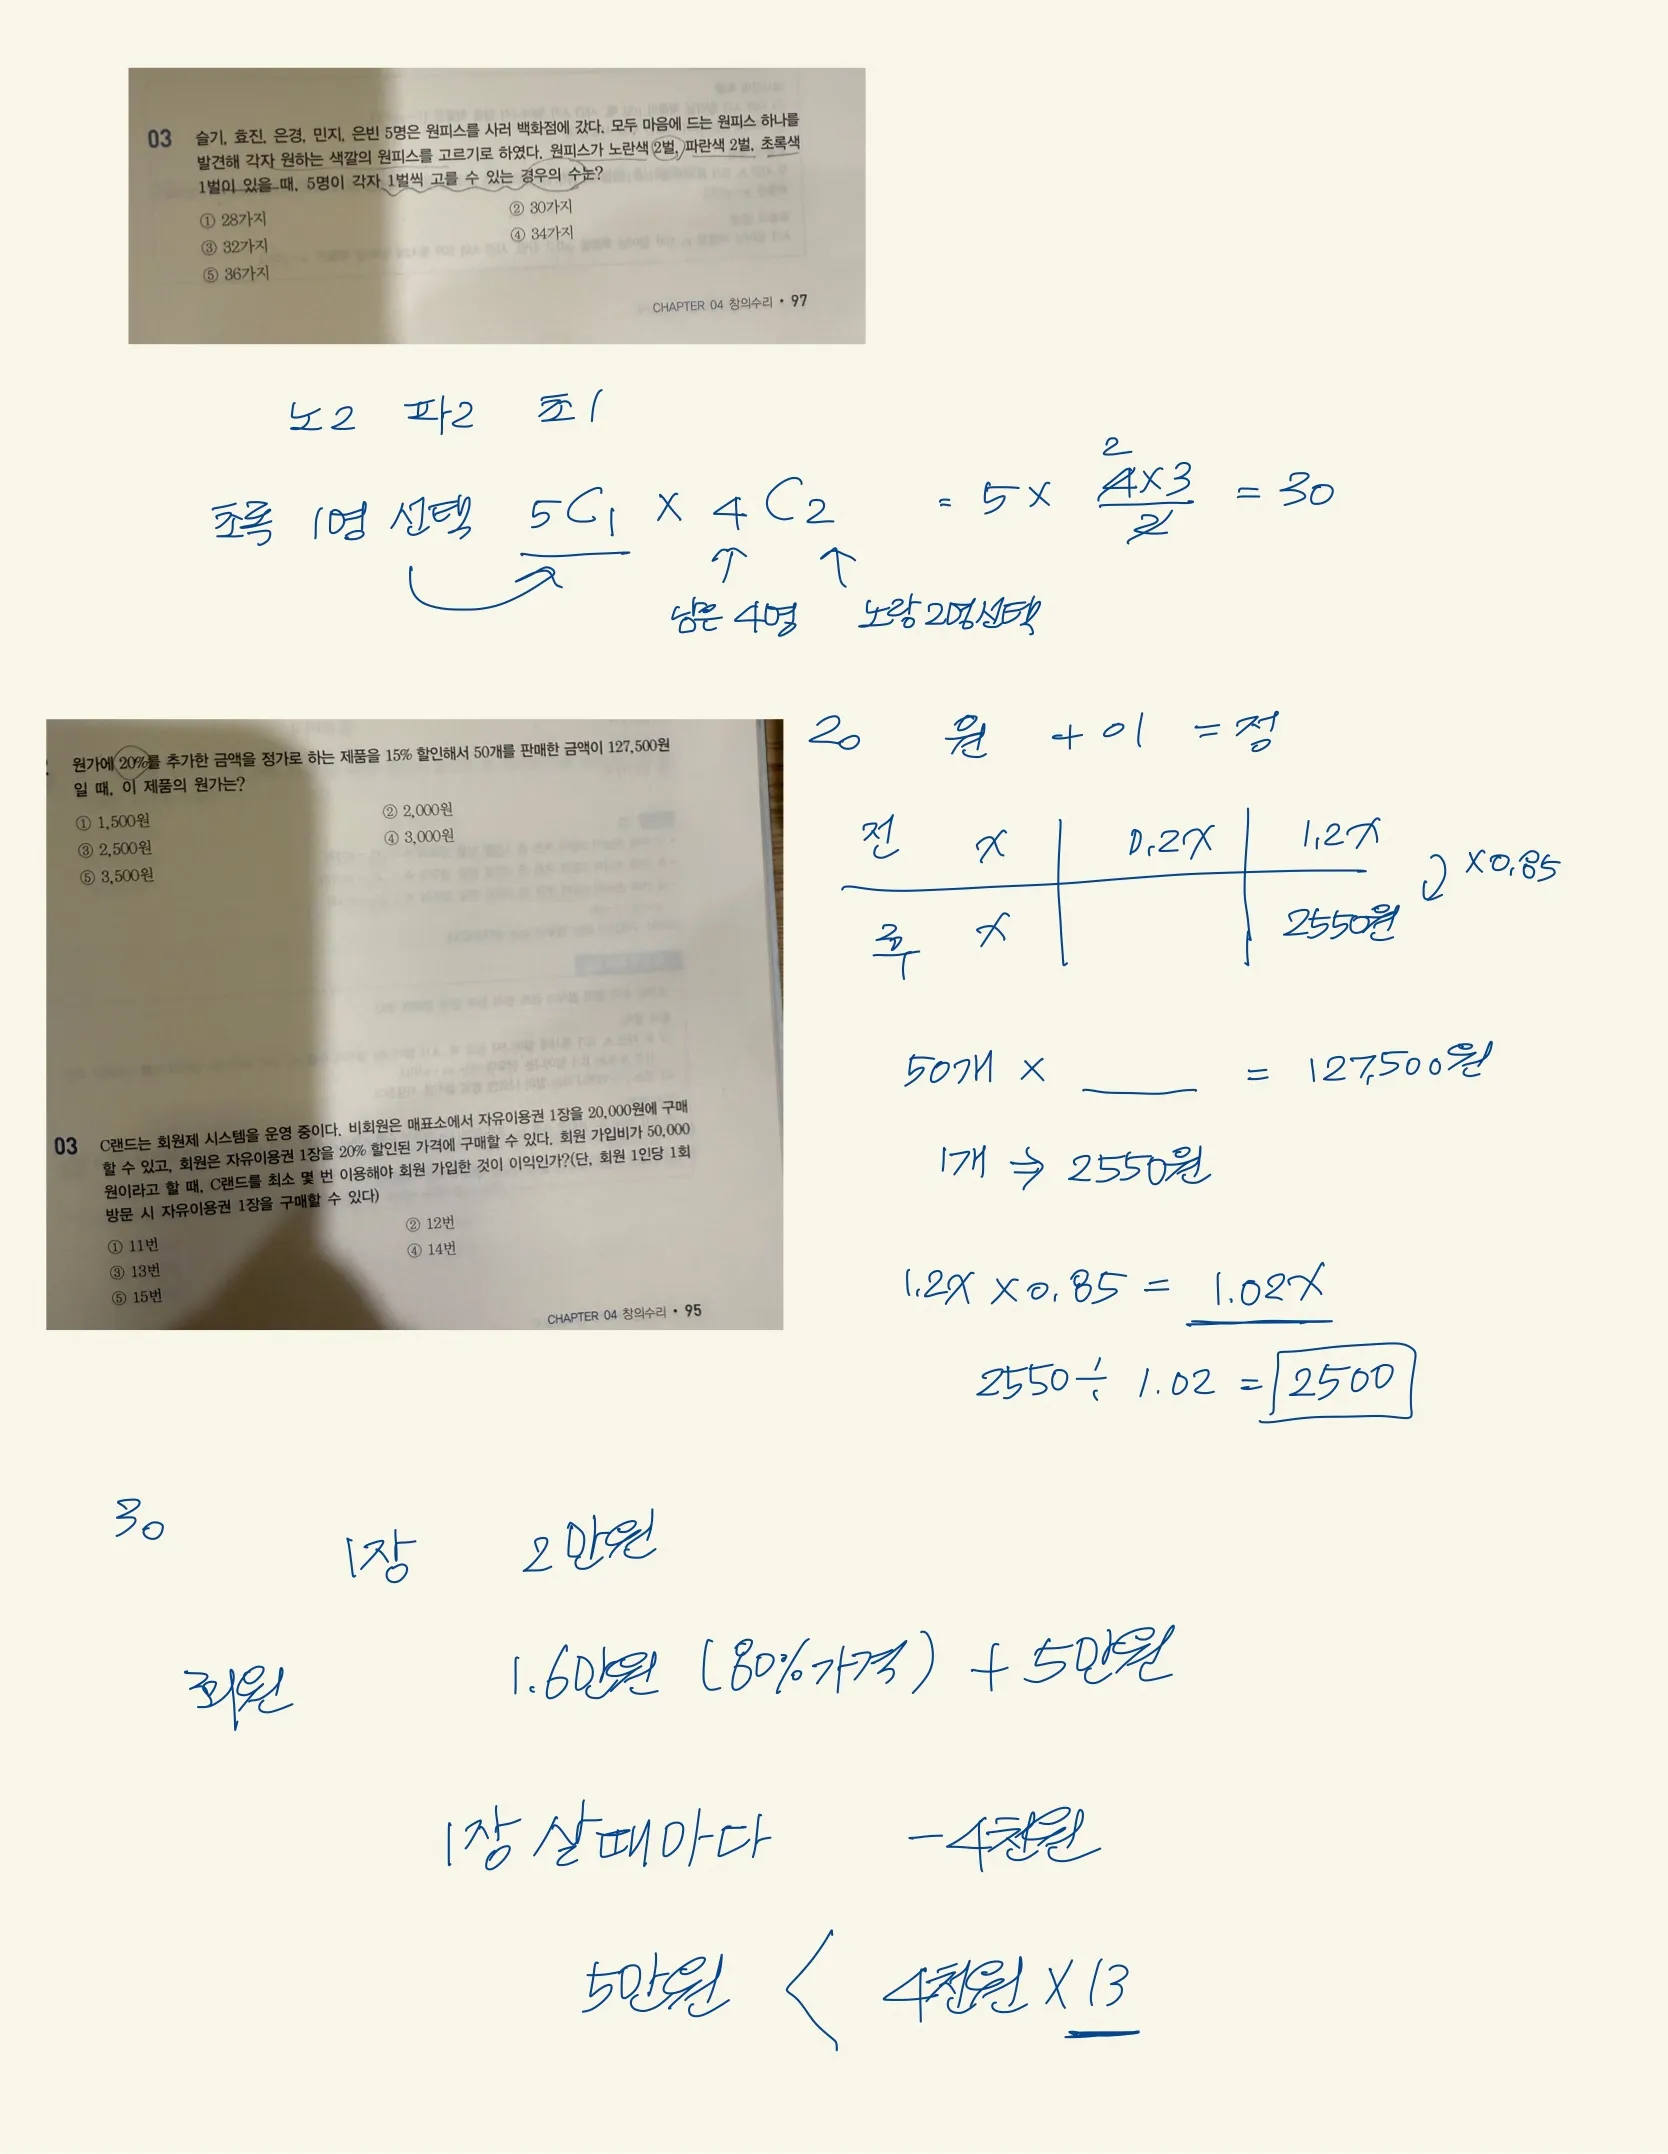 03 슬기, 효진, 은경, 민지, 은빈 5명은 원피스를 사러 백화점에 갔다. 모두 마음에 드는 원피스 하나를
발견해 각자 원하는 색깔의 원피스를 고르기로 하였다. 원피스가 노란색 2벌, 파란색 2벌, 초록색
1벌이 있을 때, 5명이 각자 1벌씩 고를 수 있는 경우의 수는?
① 28가지 ② 30가지
③ 32가지 ④ 34가지
⑤ 36가지
CHAPTER 04 창의수리 • 97
노2 파2 초1
초록 1명 선택 5C1 × 4C2 = 5 × 4×3/2 = 30
2
남은 4명 노랑 2명 선택
원가에 20%를 추가한 금액을 정가로 하는 제품을 15% 할인해서 50개를 판매한 금액이 127,500원
일 때, 이 제품의 원가는?
① 1,500원 ② 2,000원
③ 2,500원 ④ 3,000원
⑤ 3,500원
03 C랜드는 회원제 시스템을 운영 중이다. 비회원은 매표소에서 자유이용권 1장을 20,000원에 구매
할 수 있고, 회원은 자유이용권 1장을 20% 할인된 가격에 구매할 수 있다. 회원 가입비가 50,000
원이라고 할 때, C랜드를 최소 몇 번 이용해야 회원 가입한 것이 이익인가?(단, 회원 1인당 1회
방문 시 자유이용권 1장을 구매할 수 있다)
① 11번 ② 12번
③ 13번 ④ 14번
⑤ 15번
CHAPTER 04 창의수리 • 95
2。 원 + 이 = 정
전 x 0.2x 1.2x
×0.85
후 x 2550원
50개 × ___ = 127,500원
1개 ⇒ 2550원
1.2x × 0.85 = 1.02x
2550 ÷ 1.02 = 2500
3。
1장 2만원
회원 1.6만원 (80%가격) + 5만원
1장 살때마다 -4천원
5만원 < 4천원 × 13